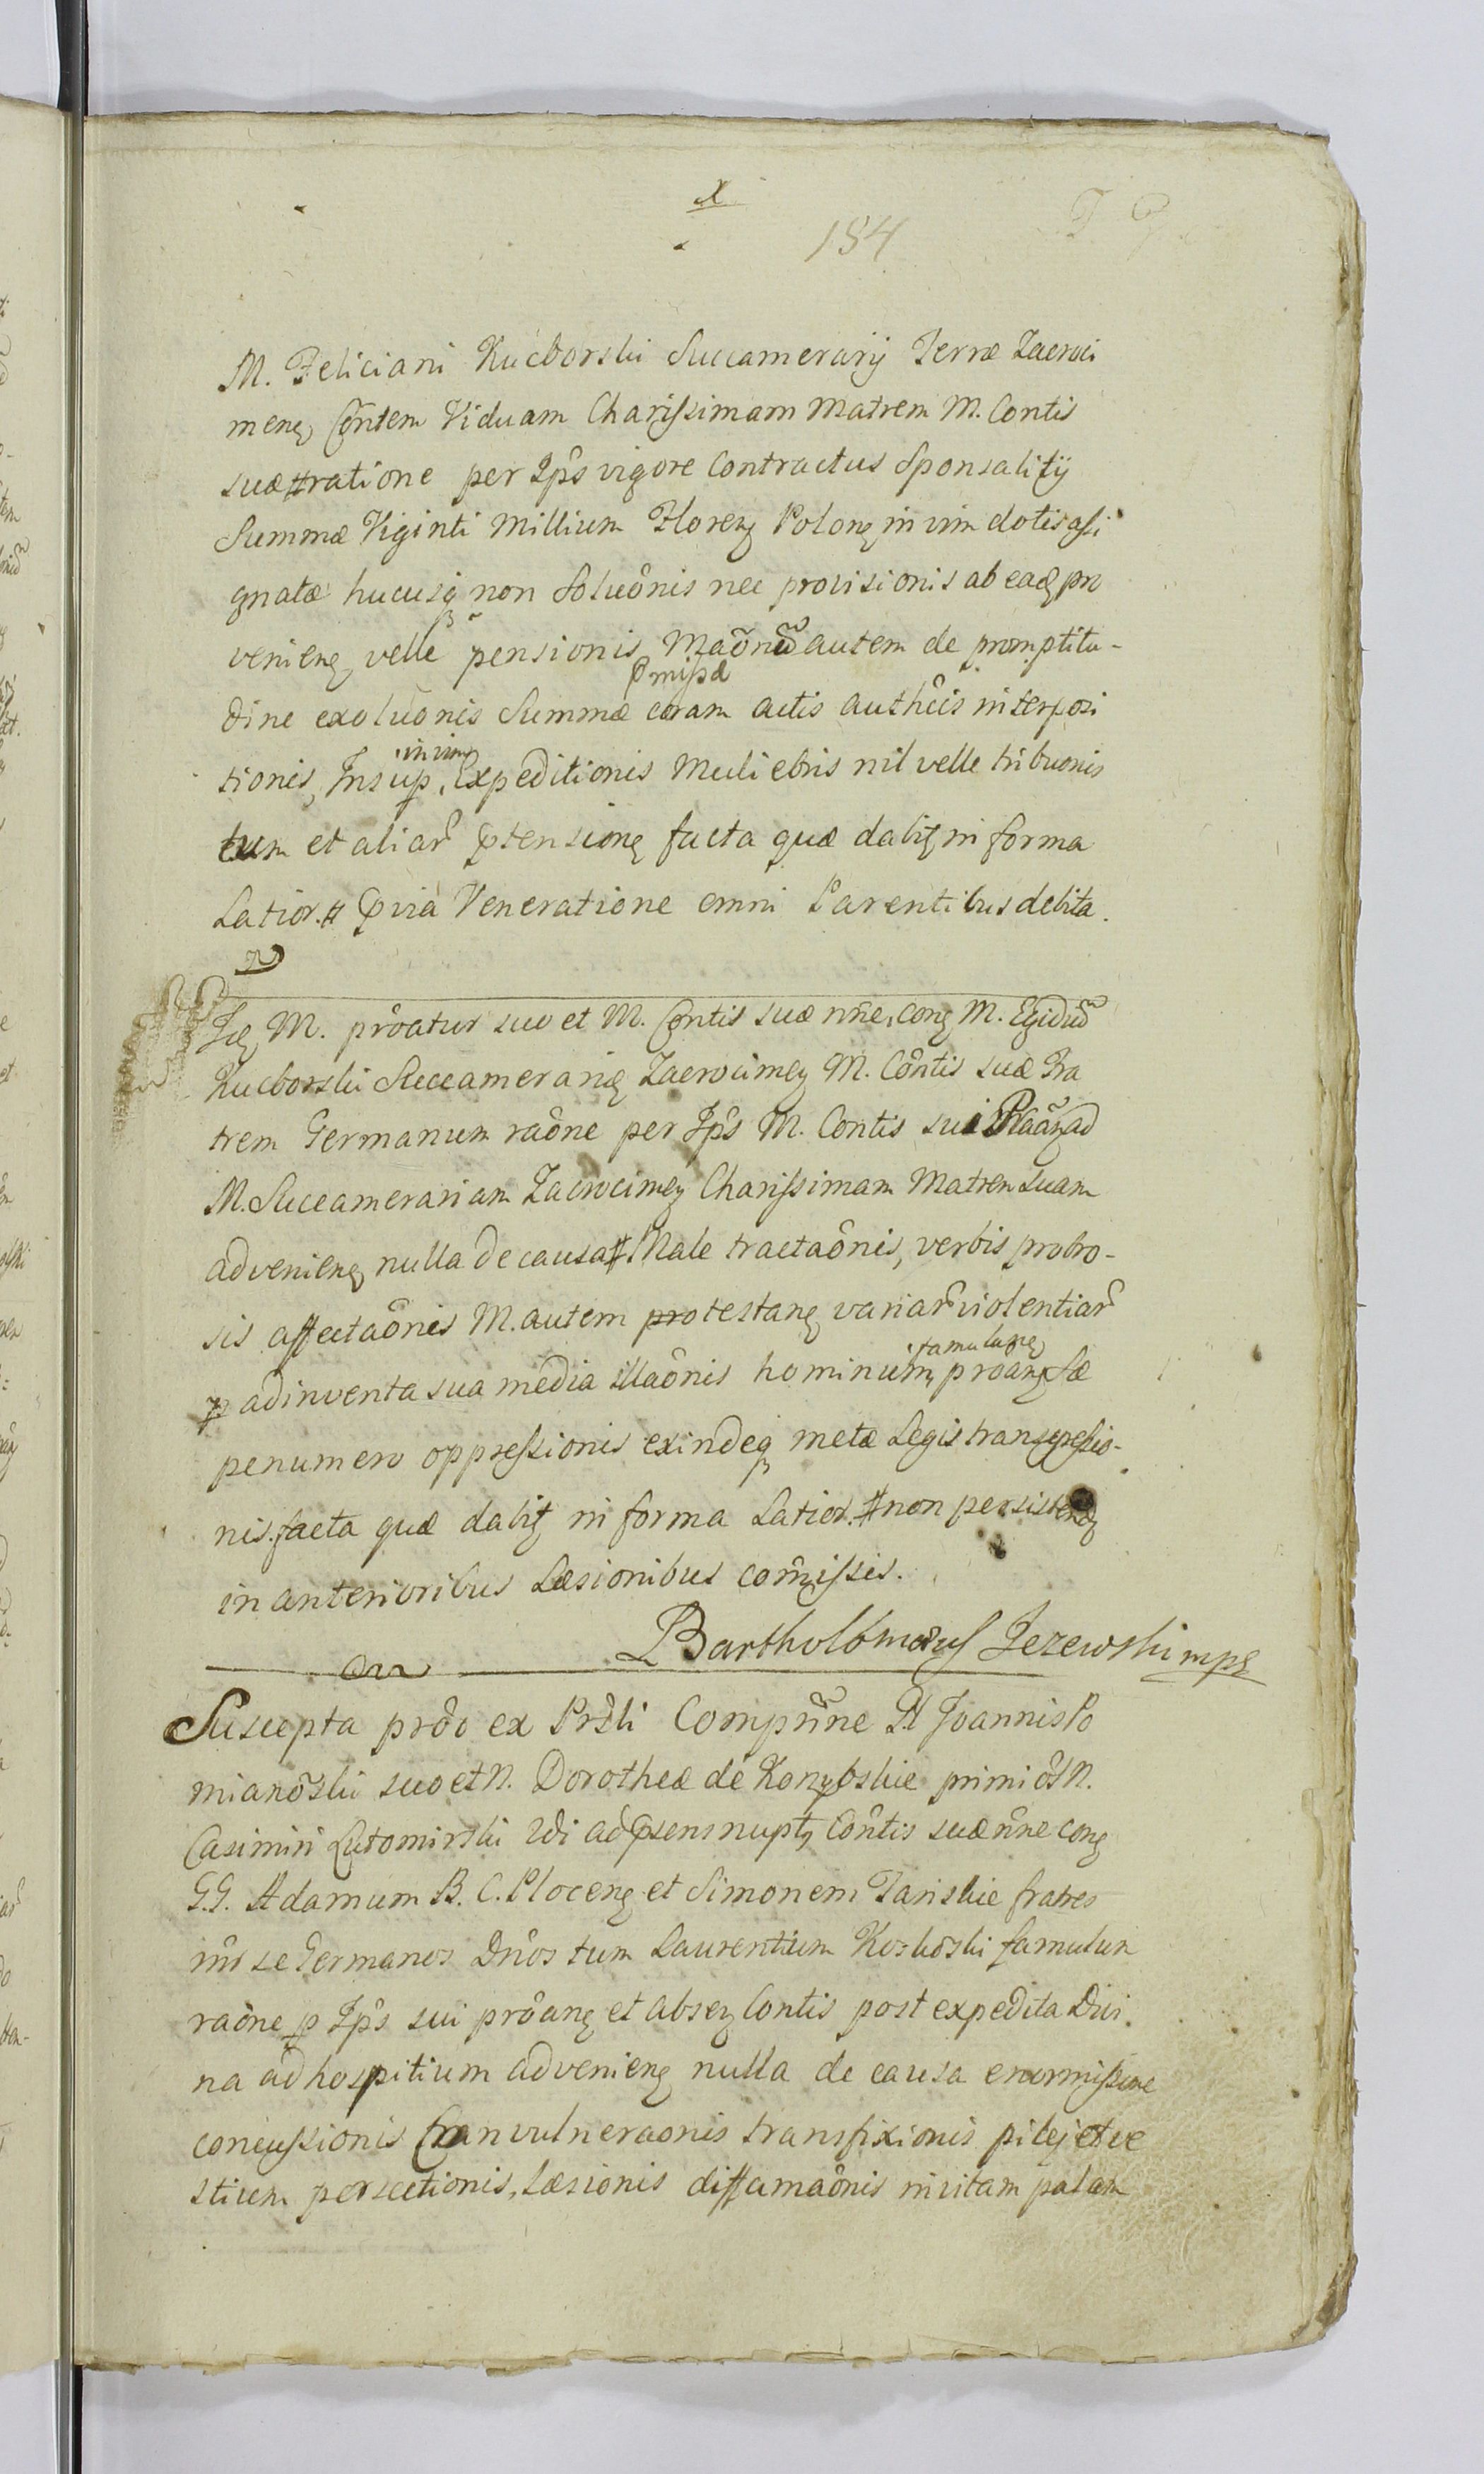 x
184
M. Feliciani Kucborski Succamerarij Terræ Zacroci
meng Contem Viduam Charissimam Matrem M. Contis
suæ # ratione per Ip̂s vigore Contractus Sponsalitij
Summæ Viginti Millium Floreng Polong in vim dotis assi
gnatæ hucusq non Soluônis nec provisionis ab eadg pro
venieng velle pensionis Maônũ autem de promptitu-
p̃missæ
dine exoluônis Summæ coram actis authcîs interposi
in vim
tionis, Insup, Expeditionis Muliebris nil velle tribuonis
tum et aliar̂ p̃tensiong facta quæ dabitg in forma
Latior. # p̃via Veneratione omni Parentibus debita.
Idg M. prôatur suo et M. Contis suæ nñe, cong M. Egidiũ
Kucborski Succamerarig Zacrocimeg M. Côntis suæ Fra
trem Germanum raône per Ip̂s M. Contis sui ad
M. Succamerariam Zacrocimeg Charissimam Matrem Suam
advenieng nulla de causa # Male tractaônis, verbis probro-
sis affectaônis M. autem protestang variar̂ violentiar̂
famulang
p adinventa sua media illaônis hominum, proang Sæ
penumero oppressionis exindeq metæ Legis transgressio-
nis. facta quæ dabitg in forma Latior. # non persistendg
in anterioribus Læsionibus com̃issis.
Bartholomæus Jezewski mpg
Suscepta prôo ex Pr̂sli Compnñe Joannis Po
mianôski suo et N. Dorotheæ de primi ôs N.
Casimiri Lutomirski Vdi ad p̃sens nuptg Côntis suæ nñe cong
G.G. Adamum B. C. Ploceng et Simonem Tariskie fratres
inr̂ se Germanos Dnôs tum Laurentium Koskôski famulum
raône p Ip̂s sui prôang et absg Contis post expedita Divi.
na ad hospitium advenieng nulla de causa enormissime
concussionis convulneraonis transfixionis pilej et ve
stium persectionis, Læsionis diffamaônis invitam palam